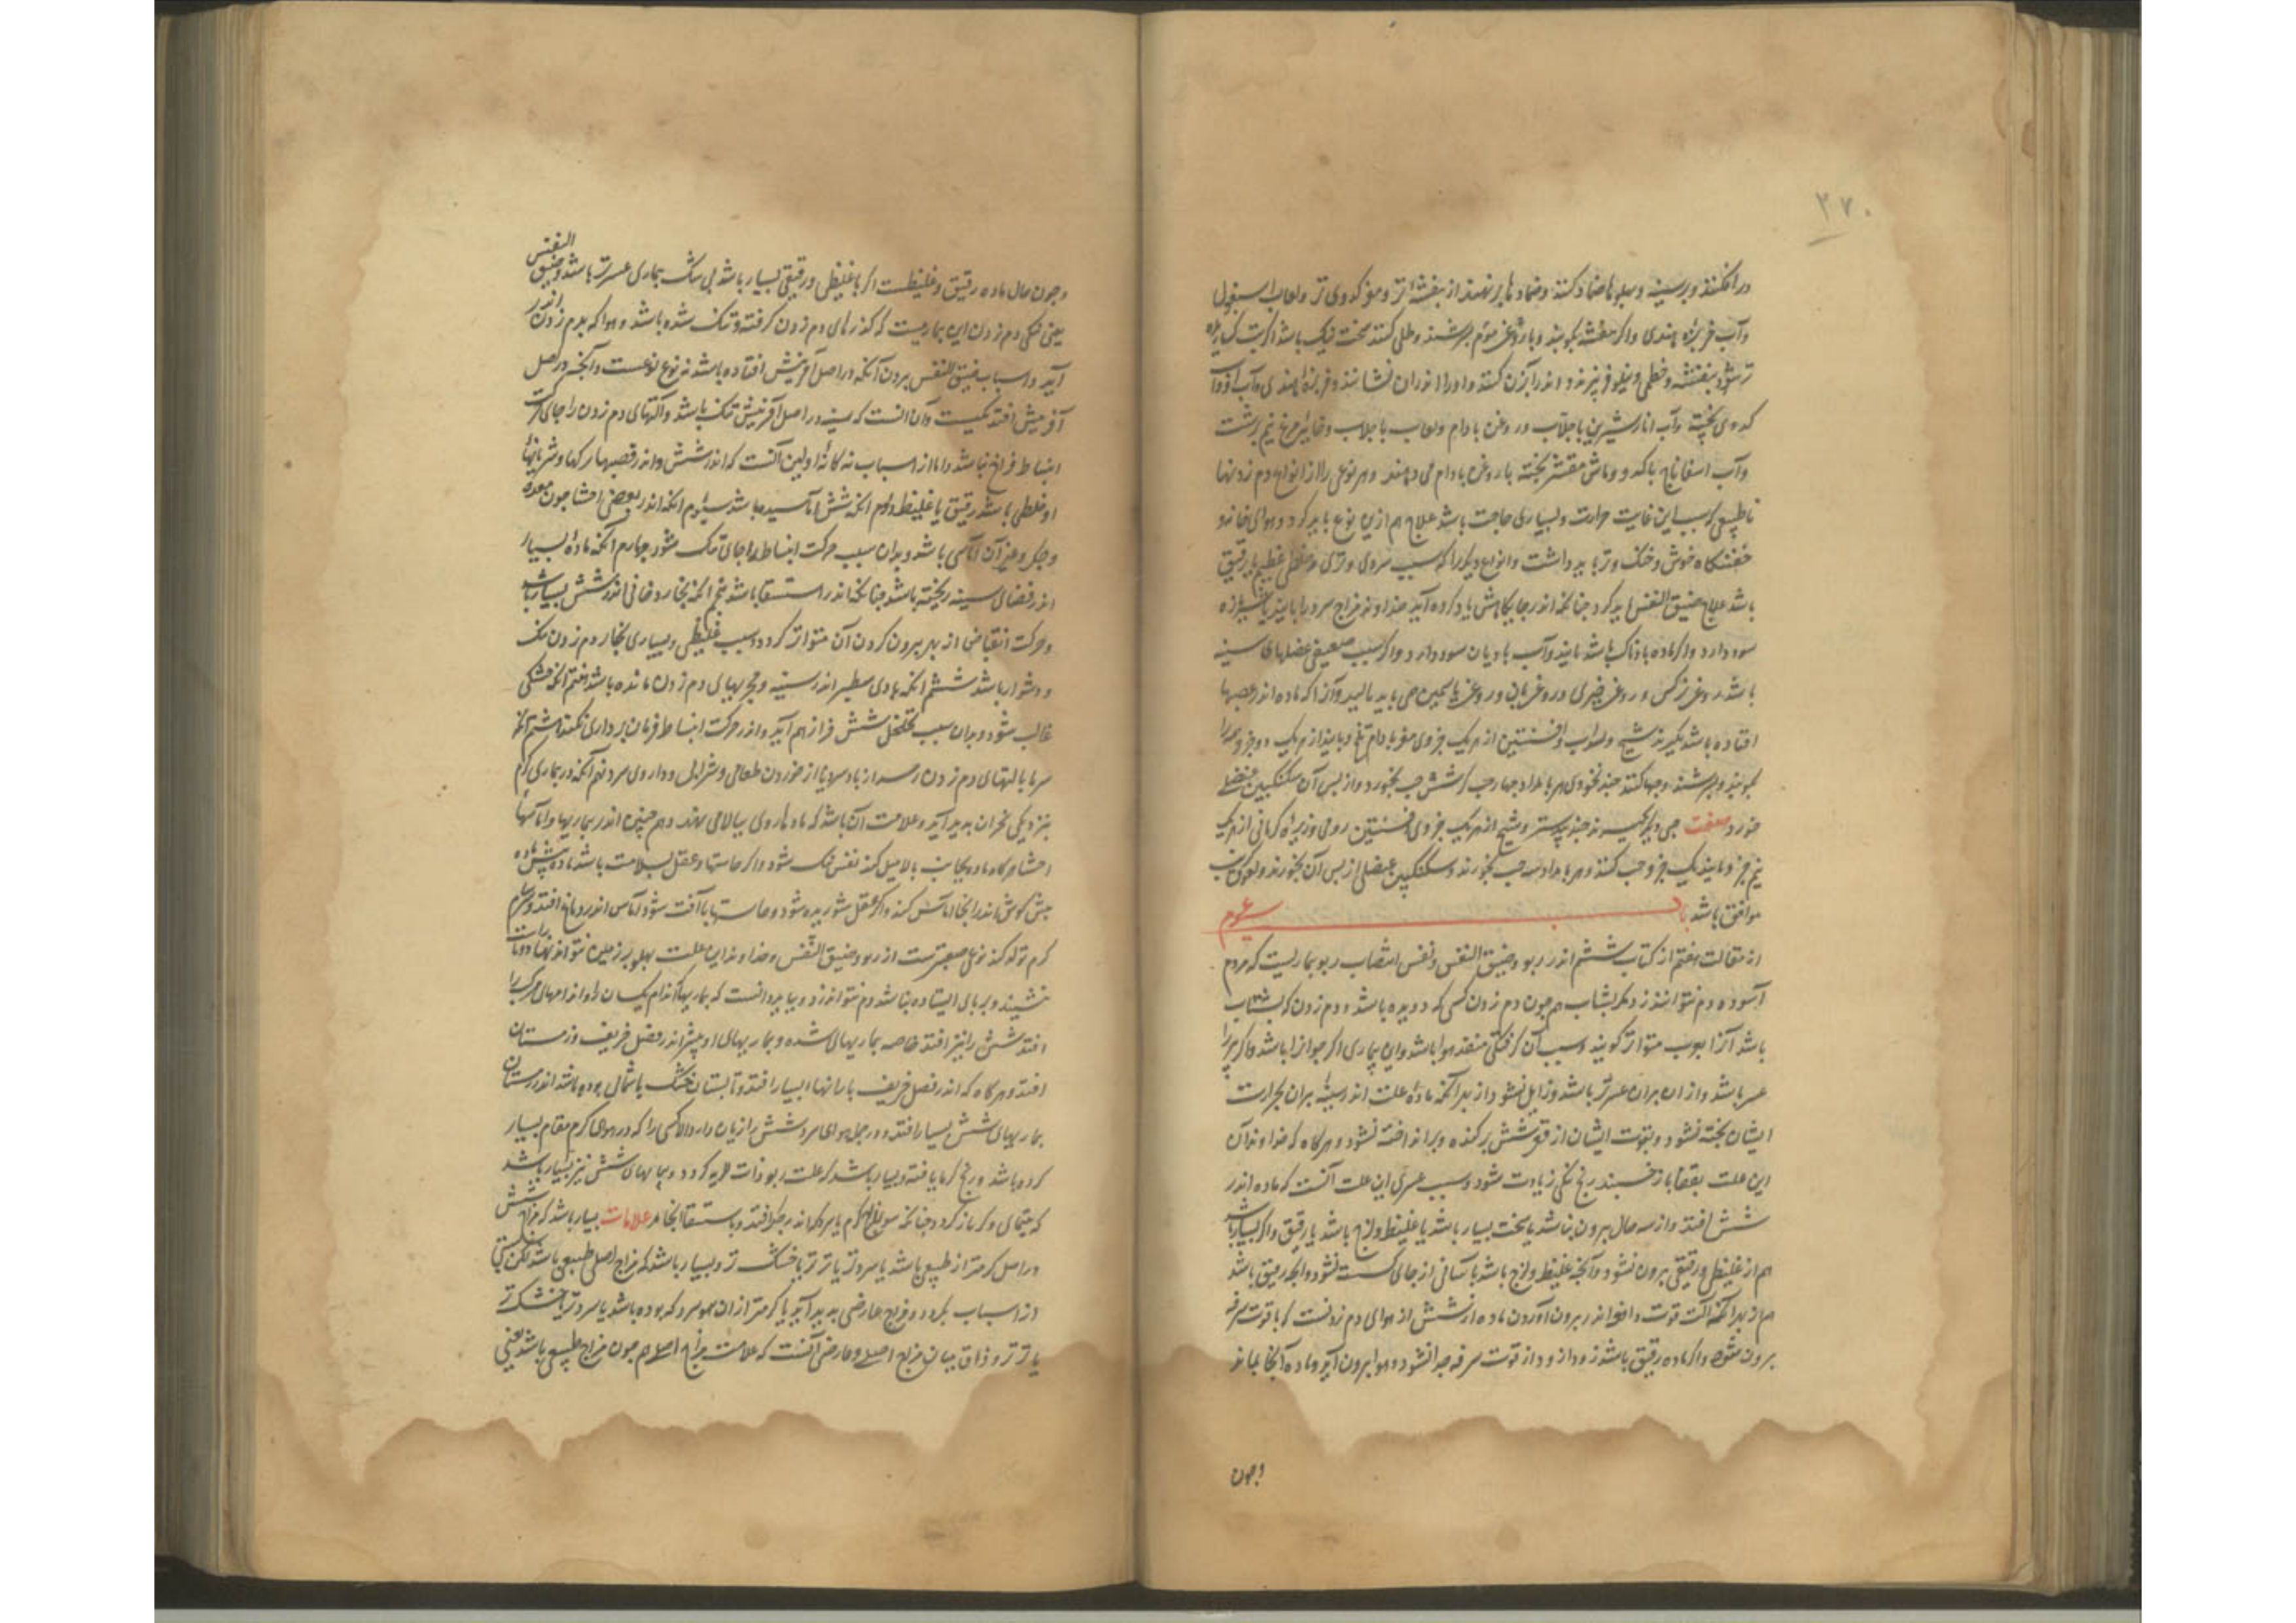 ۳۷۰
در افکنند و بر سینه و پهلوها ضماد کنند و ضمادها بر نهند از بنفشهٔ تر و مغز کدوی تر و لعاب اسبغول
وآب خربزه هندی واکر بنفشه بکوبند و با روغن موم بسرشند و طلی کنند سخت نیک باشد اکر تب
بنفشه و خطمی و نیلوفر بپزند و اندر آبزن کنند و او را اندران نشانند و خربزه هندی و آب
کدوی پخته وآب انار شیرین با جلاب و روغن بادام ولعاب با جلاب و خایه مرغ نیم برشت
وآب اسفاناخ با کدو و ماش مقشر پخته با روغن بادام می دهند و هر نوعی را از انواع دم زدنها
ناطبیعی که سبب این غایت حرارت و بسیاری حاجت باشد علاج هم ازین نوع باید کرد و هوای خانه و
خفتنکاه خوش و خنک و تر باید داشت و انواع دیکر را که سبب سردی و تری و خلطی غلیظ یا رقیق
باشد علاج ضیق النفس باید کرد جنانکه اندر جایکاهش یاد کرده آید خداوند مزاج سرد را
سود دارد واکر ماده بادناک باشد وآب بادیان سود دارد واکر سبب ضعیفی عضلهای سینه
باشد روغن نرکس و روغن خیری و روغن بان و روغن یاسمین می باید مالید وآنرا که ماده اندر عصبها
افتاده باشد بکیرند شیح و سداب و افسنتین از هر یک جزوی مغز بادام تلخ از هر یک دو جزو همه را
بکوبند و بسرشند و حبها کنند جند نخودی هر بامداد جهار حب تا شش حب بخورد و از پس آن سکنکبین عنصلی
خورد صفت حبی دیکر بکیرند جندبیدستر و شیح از هر یک جزوی افسنتین رومی و زیرهٔ کرمانی از هر یک
نیم جزو یک جزو حب کنند و هر بامداد سه حب بخورند و سکنکبین عنصلی از پس آن بخورند
موافق باشد باب سوم
از مقالت هفتم از کتاب ششم اندر ربو و ضیق النفس و نفس انتصاب ربو بیماریست که مردم
آسوده دم نتوانند زد مکر بشتاب هم جون دم زدن کسی که دویده باشد و دم زدن که بشتاب
باشد آنرا متواتر کویند و سبب آن کرفتکی منفذ هوا باشد واین بیماری اکر جوانرا باشد واکر پیر را
عسر باشد و از ان پیران عسرتر باشد و زایل نشود از بهر آنکه مادهٔ علت اندر سینهٔ پیران بحرارت
ایشان پخته نشود و بقوت ایشان از قعر شش بر کنده و بر انداخته نشود و هرکاه که خداوند آن
این علت بقفا باز خسبند رنج تنکی زیادت شود و سبب عسری این علت آنست که ماده اندر
شش افتد و از سه حال بیرون نباشد یا سخت بسیار باشد یا غلیظ و لزج باشد یا رقیق واکر بسیار باشد
هم از غلیظی و رقیقی بیرون نشود وآنجه غلیظ و لزج باشد بآسانی از جای کسسته نشود وآنجه رقیق باشد
هم از بهر آنکه آلت قوت دافعه اندر بیرون آوردن ماده از شش از هوای دم زدنست که با قوت سرفه
بیرون شود واکر ماده رقیق باشد از قوت سرفه جدا نشود و هوا بیرون آید و ماده آنجا بماند
وجون
وجون حال ماده رقیق و غلیظست اکر با غلیظی و رقیقی بسیار باشد بی شک بیماری عسرتر باشد و ضیق النفس
یعنی تنکی دم زدن این بیماریست که کذرهای دم زدن کرفته و تنک شده باشد و هوا که بدم زدن اندر
آید و اسباب ضیق النفس بیرون آنکه در اصل آفرینش افتاده باشد نه نوع است وآنجه در اصل
آفرینش افتد یکیست وآن آنست که سینه در اصل آفرینش تنک باشد وآلتهای دم زدن را جای حرکت
انبساط فراخ نباشد و اما از اسباب نه کانه اولین آنست که اندر شش و اندر قصبهها و رکها و شریانها
او خلطی باشد رقیق یا غلیظ دوم آنکه شش آماسیده باشد سیوم آنکه اندر بعضی احشا جون معده
وجکر و غیر آن آماسی باشد و بدان سبب حرکت انبساط را جای تنک شود جهارم آنکه مادهٔ بسیار
اندر فضای سینه ریخته باشد جنانکه اندر استسقا باشد پنجم آنکه بخار دخانی اندر شش بسیار باشد
و حرکت انقباض از بهر بیرون کردن آن متواتر کردد و سبب غلیظی و بسیاری بخار دم زدن تنک
و دشوار باشد ششم آنکه بادی سطبر اندر سینه و مجریهای دم زدن مانده باشد هفتم آنکه خشکی
غالب شود و بدان سبب تخلخل شش فراز هم آید و اندر حرکت انبساط فرمان برداری نکند هشتم آنکه
سرما بآلتهای دم زدن رسد از باد سرد یا از خوردن طعامی و شرابی و داروی سرد نهم آنکه در بیماری کرم
بنزدیکی بحران پدید آید و علامت آن باشد که ماده روی ببالا می نهد و هم جنین اندر بیماریها و آماسها
احشا هرکاه ماده بجانب بالا میل کند نفس تنک شود واکر حاستها و عقل بسلامت باشد ماده
پیش کوش اندر آنجا آماس کند واکر عقل شوریده شود و حاستها با آفت شود آماس اندر دماغ افتد
کرم تولد کند نوعی صعبترست از ربو و ضیق النفس و خداوند این علت پهلو بر زمین نتواند نهاد و تا راست
ننشیند و بر پای ایستاده نباشد دم نتواند زد و بباید دانست که بیماریها کدام یکسان را و اندامهای مرکب را
افتد شش را نیز افتد خاصه بیماریهای سده و بیماریهای او بیشتر اندر فصل خریف و زمستان
افتد و هرکاه که اندر فصل خریف بارانها بسیار افتد و تابستان خشک یا شمالی بوده باشد اندر زمستان
بیماریهای شش بسیار افتد و در جمله هوای سرد شش را زیان دارد الا کسی را که در هوای کرم مقام بسیار
کرده باشد و رنج کرما یافته و بسیار باشد که علت ربو ذات الریه کردد و بیماریهای شش نیز بسیار باشد
که باز کردد جنانکه سوء المزاج کرم یا سرد که اندر جکر افتد و باستسقا انجامد علامات بسیار باشد که مزاج شش
در اصل کرمتر از طبیعی باشد یا سردتر یا تر تر یا خشک تر و بسیار باشد که مزاج اصلی طبیعی باشد لکن بسببی
از اسباب بکردد و مزاج عارضی پدید آید یا کرمتر از ان شود که بوده باشد یا سردتر یا خشک تر
یا تر تر و فرق میان مزاج اصلی و عارضی آنست که علامت مزاج اصلی هم جون مزاج طبیعی باشد یعنی